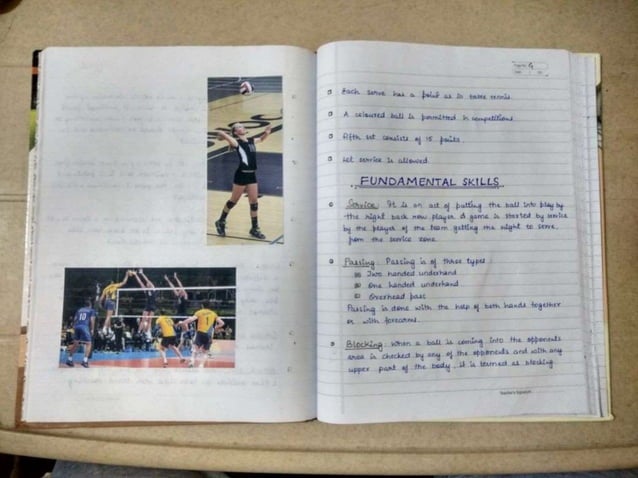 Page No. 4
Date
Each serve has a point as in table tennis.
A coloured ball is permitted in competitions
Fifth set consists of 15 points.
Let service is allowed.
FUNDAMENTAL SKILLS
Service: It is an act of putting the ball into play by
the right back row player. A game is started by service
by the player of the team getting the right to serve,
from the service zone.
Passing: Passing is of three types
Two handed underhand
One handed underhand
Overhead pass
Passing is done with the help of both hands together
or with forearms.
Blocking: When a ball is coming into the opponents
area is checked by any of the opponents and with any
upper part of the body, it is termed as blocking
Teacher's Signature
10
1